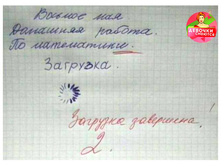 Восьмое мая
Домашняя работа.
По математики.
Загрузка.
Загрузка завершена.
2.
ДЕВОЧКИ
СМЕЮТСЯ